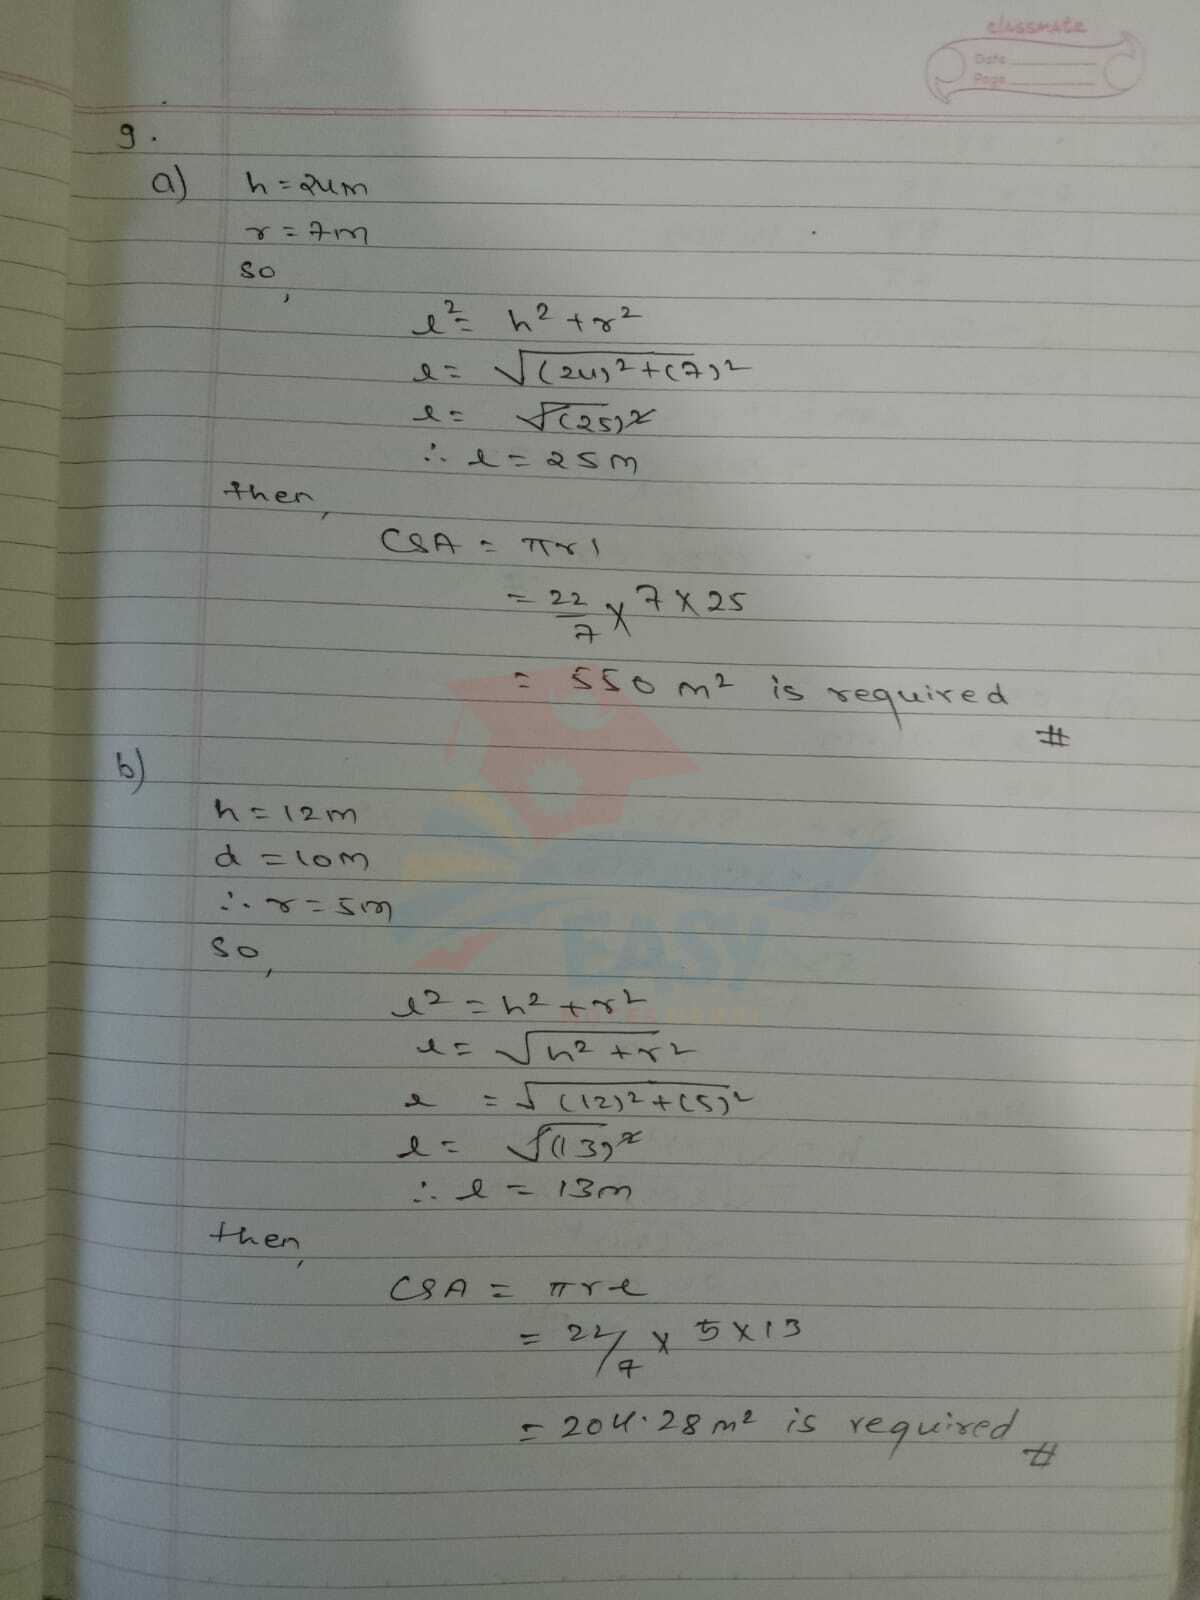 classmate
Date
Page
9.
a) h = 24m
r = 7m
so,
l² = h² + r²
l = √(24)² + (7)²
l = √(25)²
∴ l = 25m
then,
CSA = πrl
= 22/7 × 7 × 25
= 550 m² is required
#
b)
h = 12m
d = 10m
∴ r = 5m
so,
EASY
l² = h² + r²
l = √h² + r²
l = √(12)² + (5)²
l = √(13)²
∴ l = 13m
then,
CSA = πrl
= 22/7 × 5 × 13
= 204.28 m² is required
#